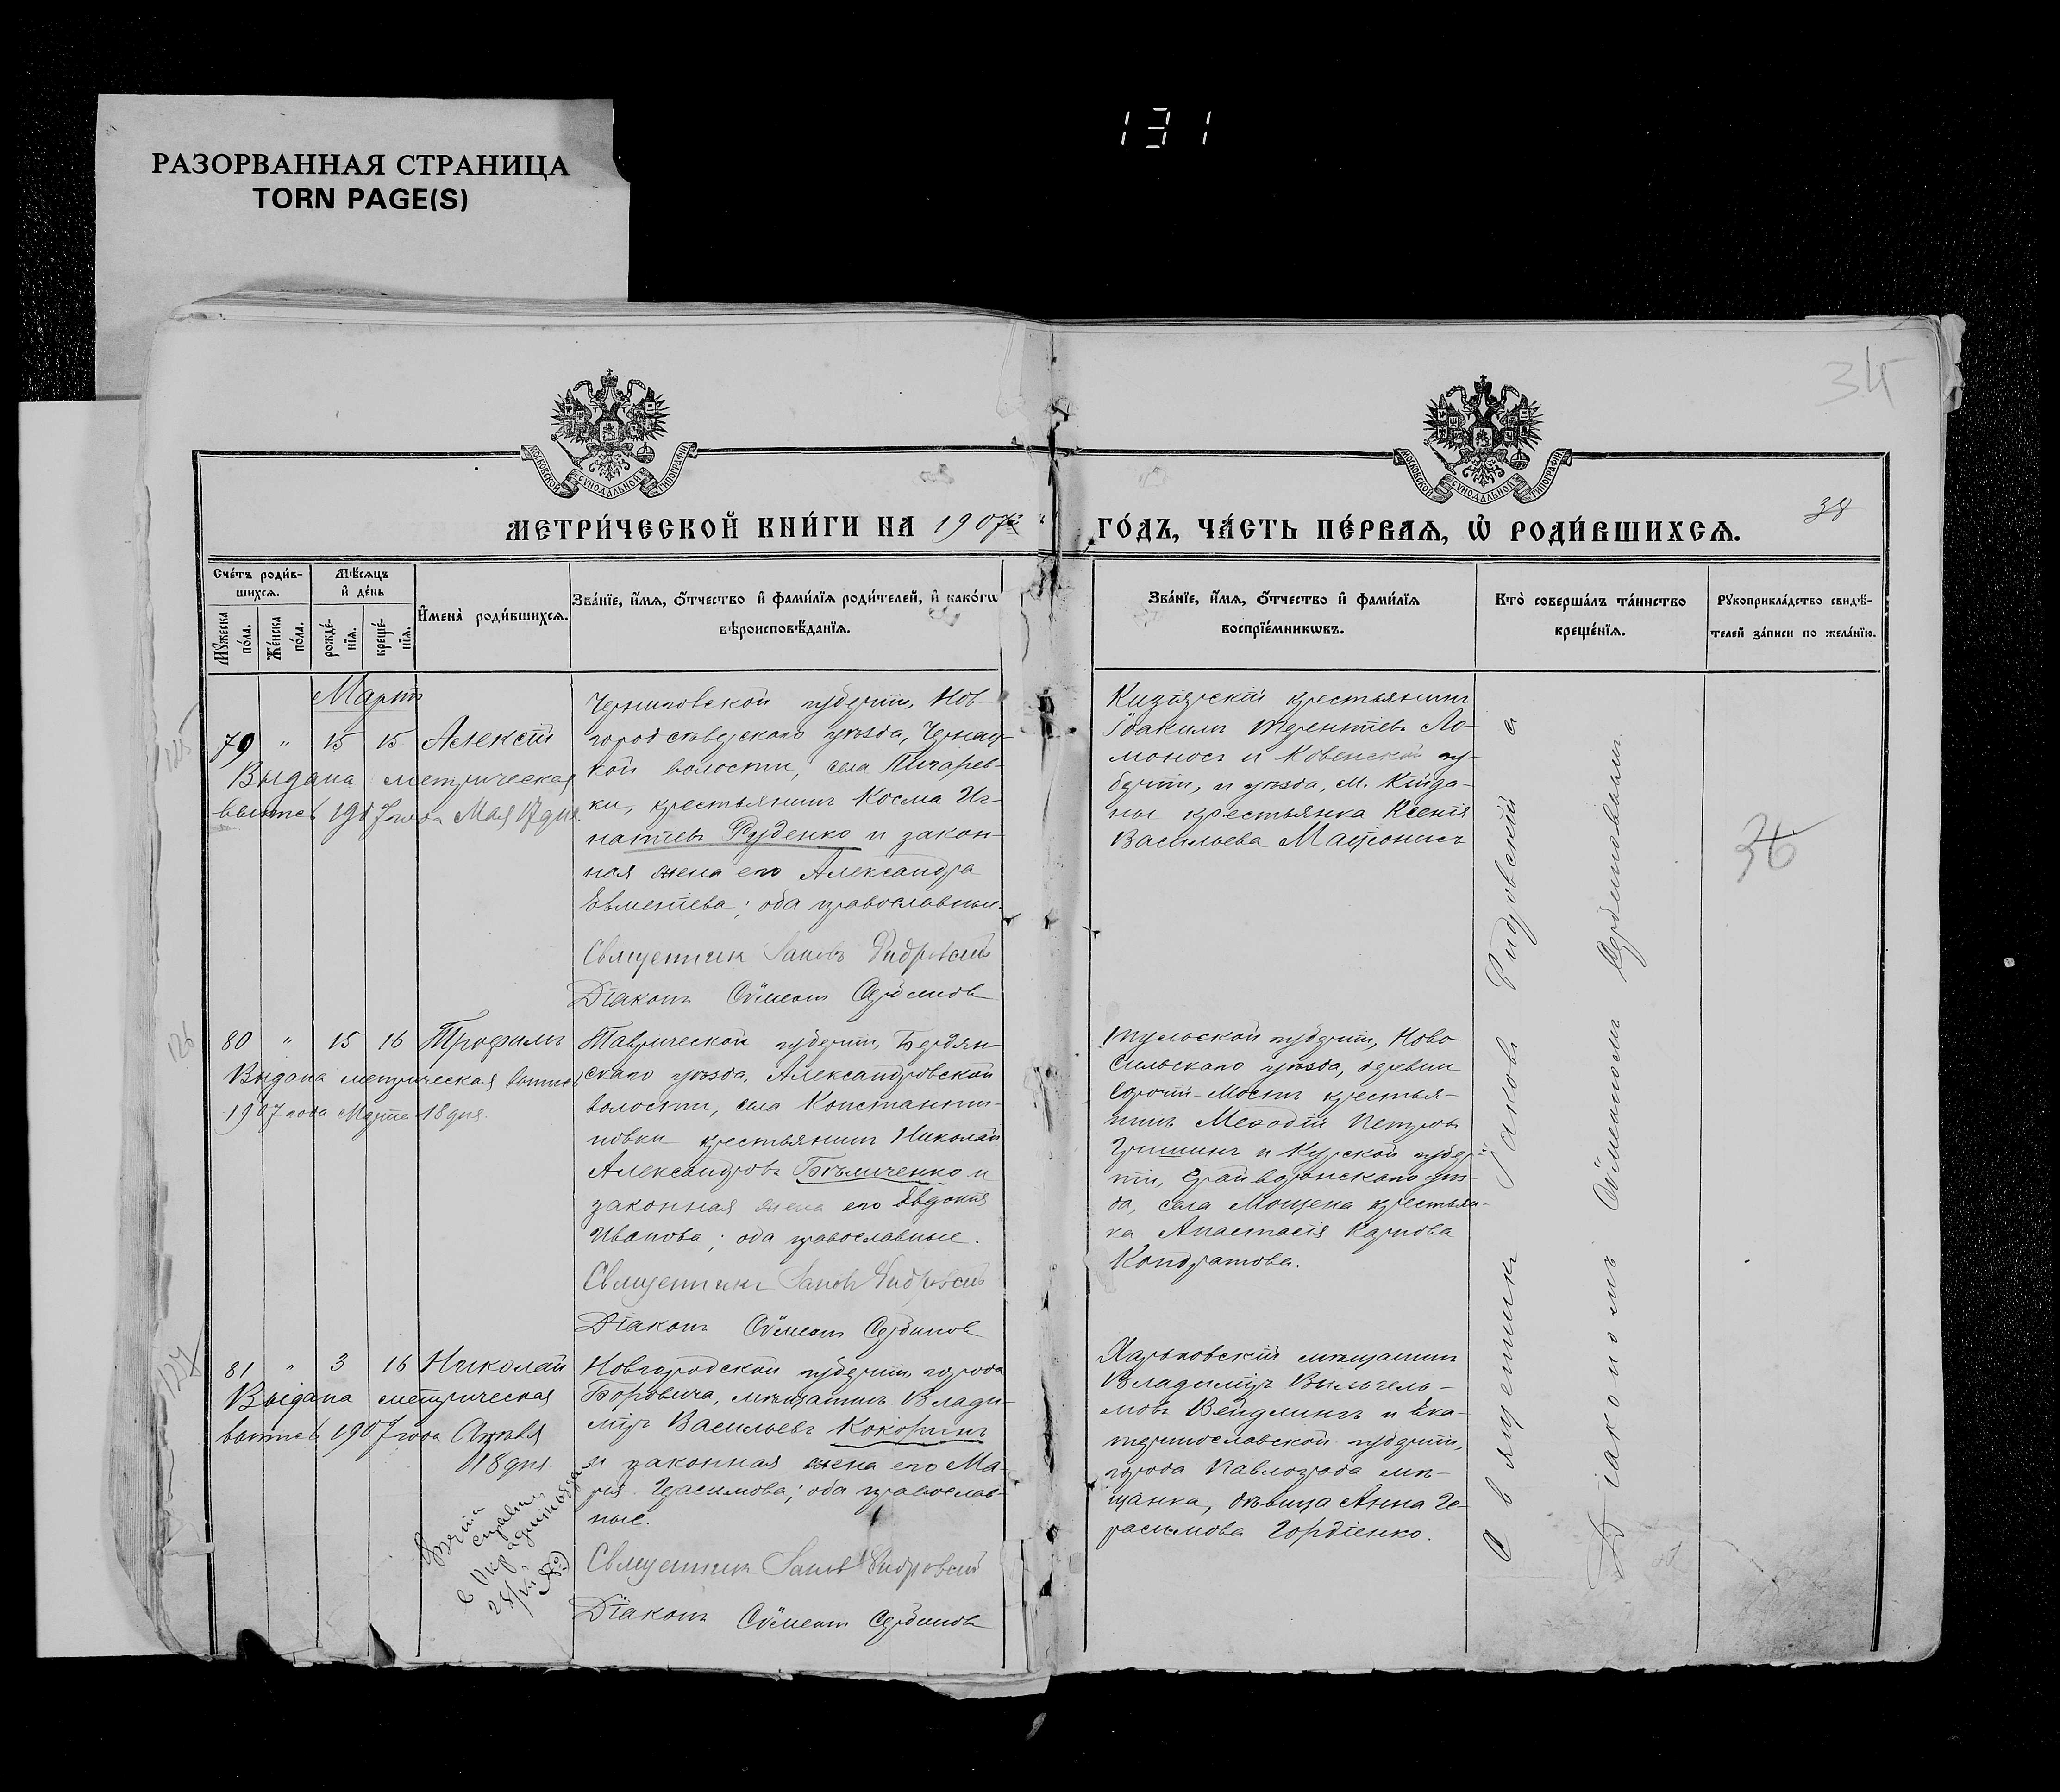 131
РАЗОРВАННАЯ СТРАНИЦА
TORN PAGE(S)
34
МОСКОВСКОЙ СѴНОДАЛЬНОЙ ТИПОГРАФІИ
МОСКОВСКОЙ СѴНОДАЛЬНОЙ ТИПОГРАФІИ
МЕТРИ́ЧЕСКОЙ КНИ́ГИ НА 1907 ГО́ДЪ, ЧА́СТЬ ПЕ́РВАЯ, Ѡ҆ РОДИ́ВШИХСЯ.
38
Сче́тъ роди́в-
шихсѧ.
Мꙋ́жеска
по́ла.
Же́нска
по́ла.
Мѣ́сѧцъ
и҆ де́нь
рожде́-
нїѧ.
креще́-
нїѧ.
И҆мена̀ роди́вшихсѧ.
Зва́нїе, и҆́мѧ, ѻ҆́тчество и҆ фами́лїѧ роди́телей, и҆ како́гѡ
вѣроисповѣ́данїѧ.
Зва́нїе, и҆́мѧ, ѻ҆́тчество и҆ фами́лїѧ
воспрїе́мникѡвъ.
Кто̀ соверша́лъ та́инство
креще́нїѧ.
Рꙋкоприкла́дство свидѣ́-
телей за́писи по жела́нїю.
Мартъ
125
79 " 15 15 Алексѣй
Выдана метрическая
выпись 1907 года Мая 17 дня.
Черниговской губерніи, Нов-
городсѣверскаго уѣзда,
кой волости, села Пигарев-
ки, крестьянинъ Косма Иг-
натіевъ Руденко и закон-
ная жена его Александра
Евментіева; оба православные.
Священникъ Іаковъ
Діаконъ Сѵмеонъ Сербиновъ
крестьянинъ
Іоакимъ Терентіевъ Ло-
моносъ и Ковенской гу-
берніи, и уѣзда, м. Кейда-
ны крестьянка Ксенія
Васильева
36
126
80 " 15 16 Трофимъ
Выдана метрическая выпись
1907 года Марта 18 дня.
Таврической губерніи, Бердян-
скаго уѣзда, Александровской
волости, села Константи-
новки крестьянинъ Николай
Александровъ Бѣличенко и
законная жена его Евдокія
Иванова; оба православные.
Священникъ Іаковъ
Діаконъ Сѵмеонъ Сербиновъ
Тульской губерніи, Ново
сильскаго уѣзда, деревни
Мостъ крестья-
нинъ Меѳодій Петровъ
Гришинъ и Курской губер-
ніи, Грайворонскаго уѣз-
да, села Мощена крестьян-
ка Анастасія Карпова
Кондратова.
127
81 " 3 16 Николай
Выдана метрическая
выпись 1907 года Апрѣля
18 дня.
Новгородской губерніи города
Боровича, мѣщанинъ Влади-
міръ Васильевъ Кокоринъ
и законная жена его Ма-
рія Герасимова; оба православ-
ные.
Священникъ Іаковъ
Діаконъ Сѵмеонъ Сербиновъ
Харьковскій мѣщанинъ
Владиміръ Вильгель-
мовъ Вейдлингъ и Ека-
теринославской губерніи,
города Павлограда мѣ-
щанка, дѣвица Анна Ге-
расимова Гордіенко.
Священникъ Іаковъ
съ
Діакономъ Сѵмеономъ Сербиновымъ